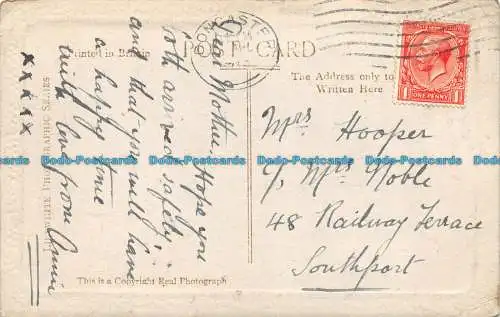 POST CARD
Printed in Britain
The Address only to
Written Here
Dear Mother, Hope you
both arrived safely,
and that you will have
a happy time
with love from Annie
x x x x x
Mrs Hooper
c/o Mrs Noble
48 Railway Terrace
Southport
ONE PENNY
This is a Copyright Real Photograph
PHOTOGRAPHIC SERIES
Dodo-Postcards Dodo-Postcards Dodo-Postcards Dodo-Postcards Dodo-Postcards